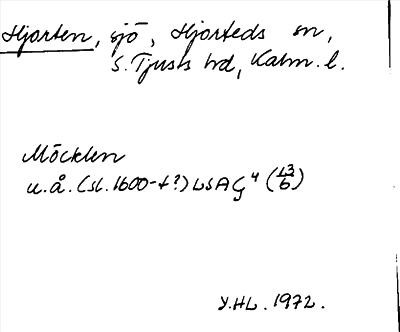 Hjorten, sjö, Hjorteds sn,
S. Tjusts hd, Kalm. l.
Möcklen
u.å. (sl. 1600-t?) LSA Ç⁴ (13/6)
Y.HL. 1972.